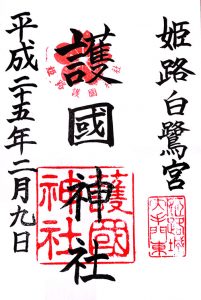 姫路白鷺宮
姫路城
大手門東
護國神社
護國
神社
平成二十五年二月九日